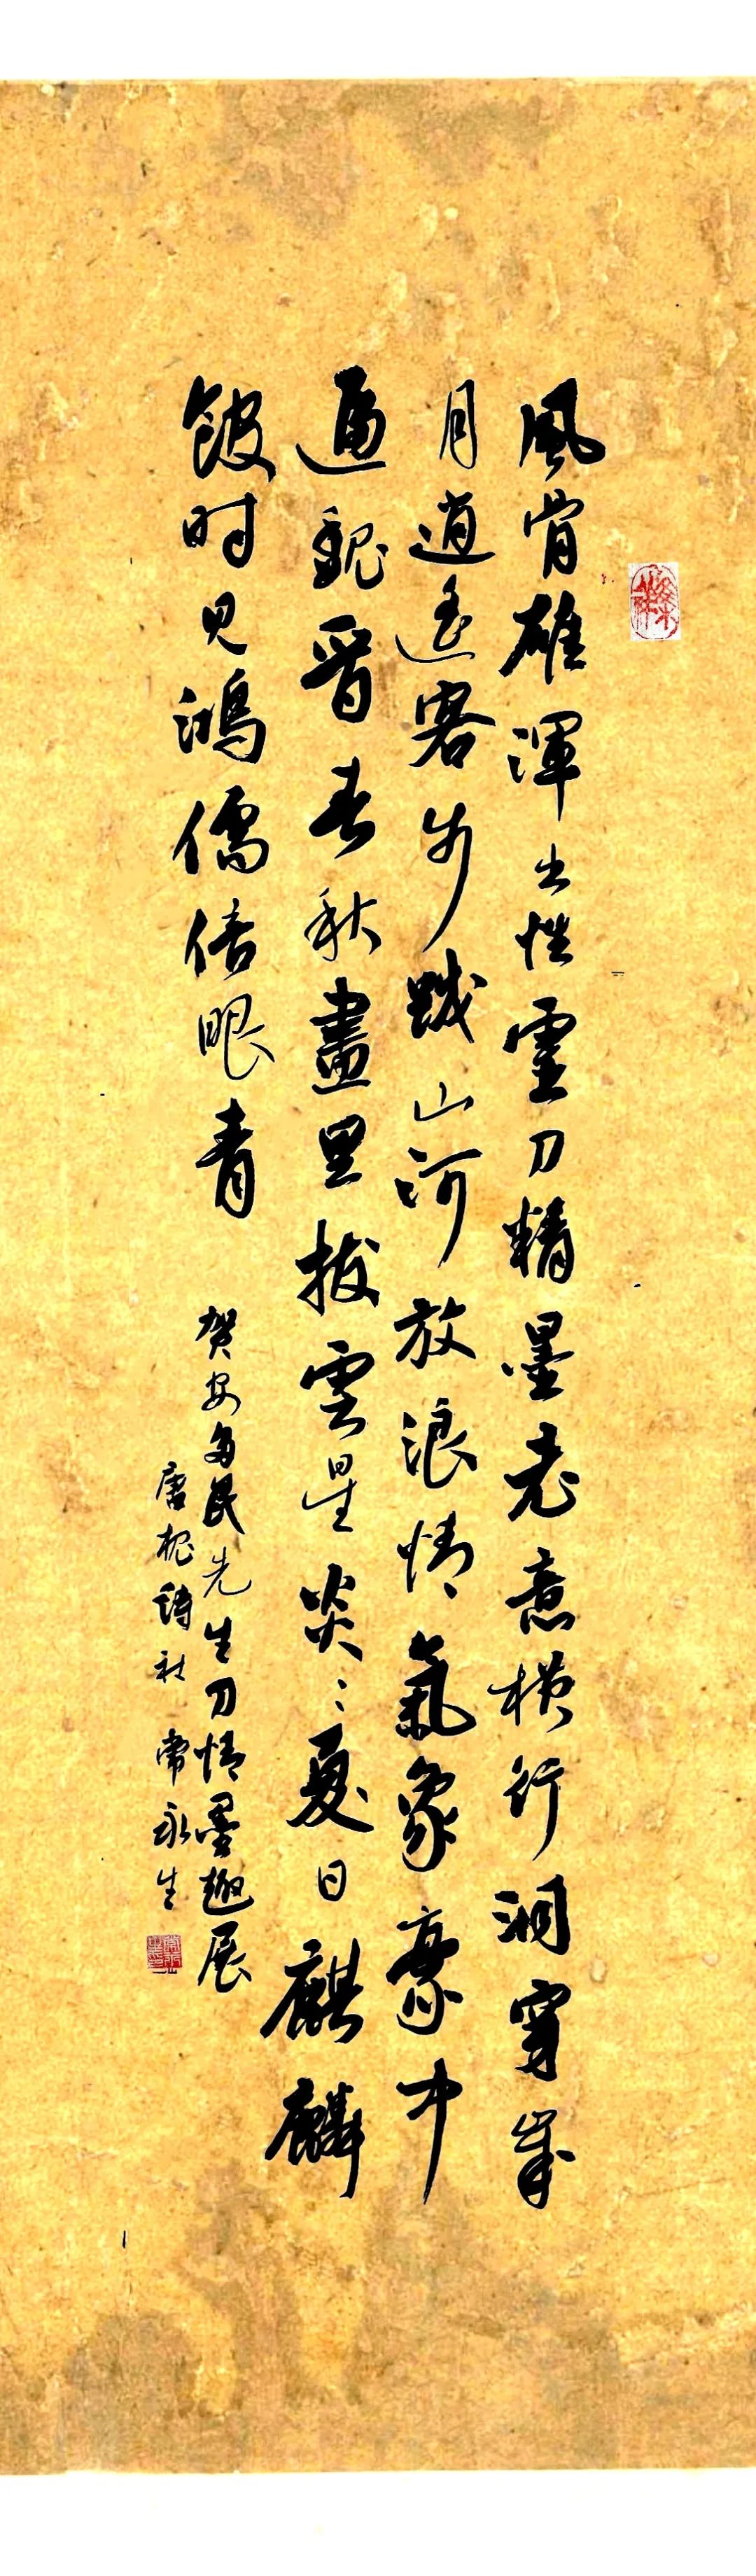 風骨雄渾出性靈刀精墨老意横行洞穿歲
月逍遥客步踐山河放浪情氣象豪中
通魏晋春秋畫里拔雲星炎〻夏日麒麟
館时见鴻儒倍眼青
贺安多民先生刀情墨趣展
唐槐詩社 常永生